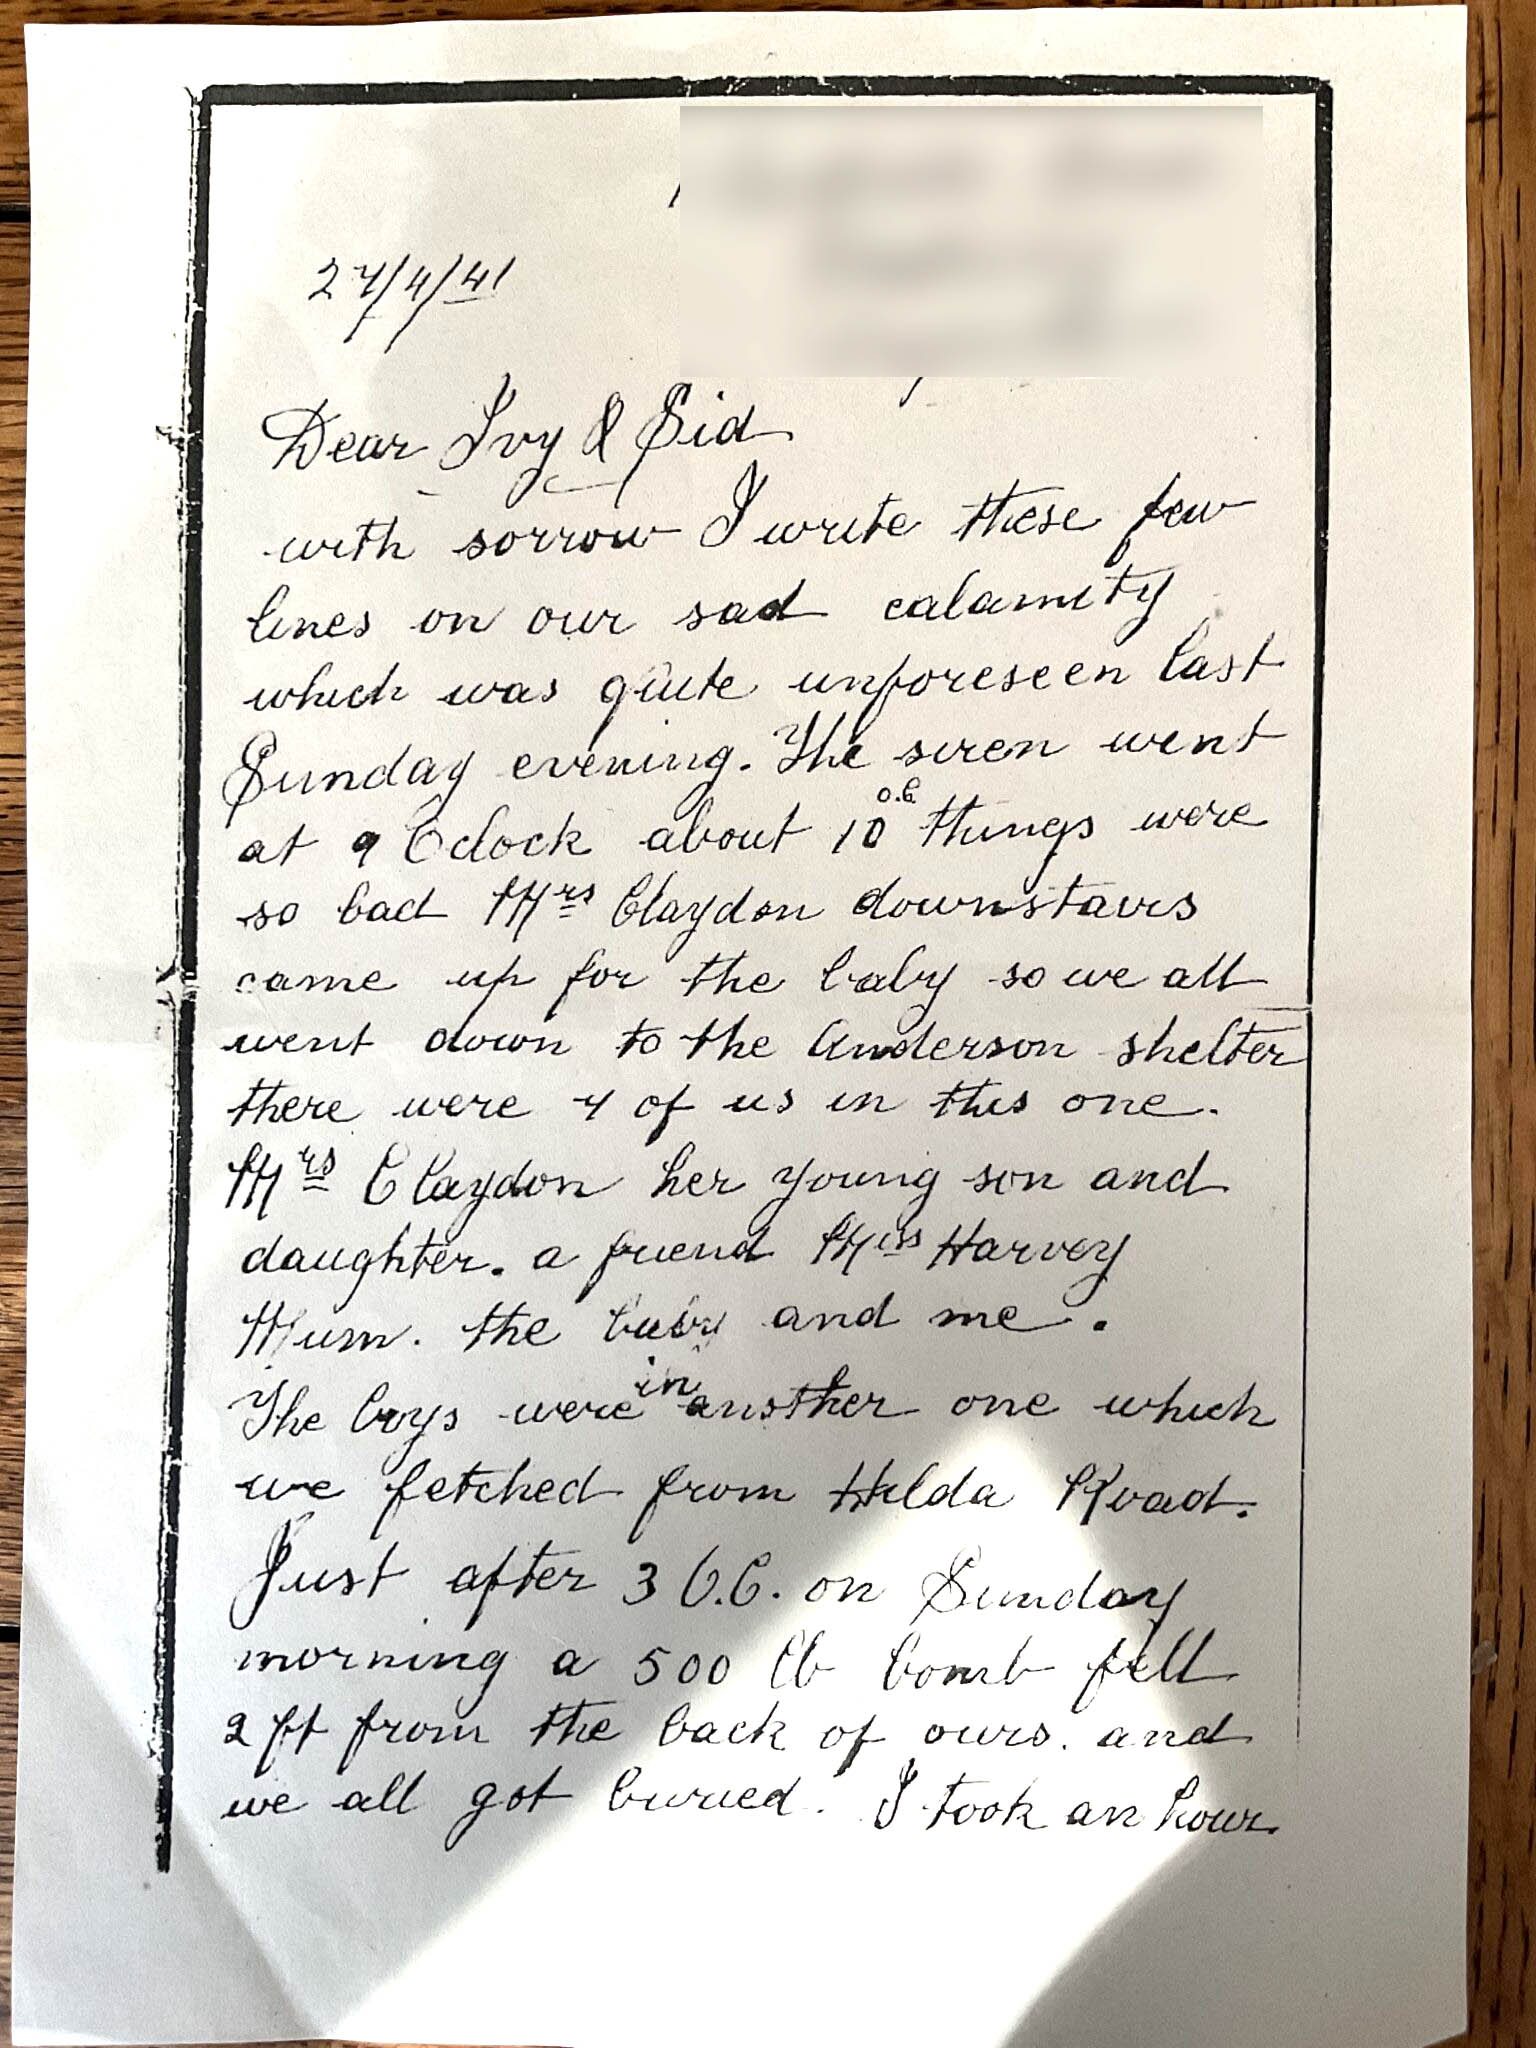 27/4/41
Dear Ivy & Sid
with sorrow I write these few
lines on our sad calamity
which was quite unforeseen last
Sunday evening. The siren went
at 9 Oclock about 10 o.c. things were
so bad Mrs Claydon downstairs
came up for the baby so we all
went down to the Anderson shelter
there were 7 of us in this one.
Mrs Claydon her young son and
daughter. a friend Miss Harvey
Mum. the baby and me.
The boys were in another one which
we fetched from Hilda Road.
Just after 3 O.C. on Sunday
morning a 500 lb bomb fell
2 ft from the back of ours. and
we all got buried. I took an hour.